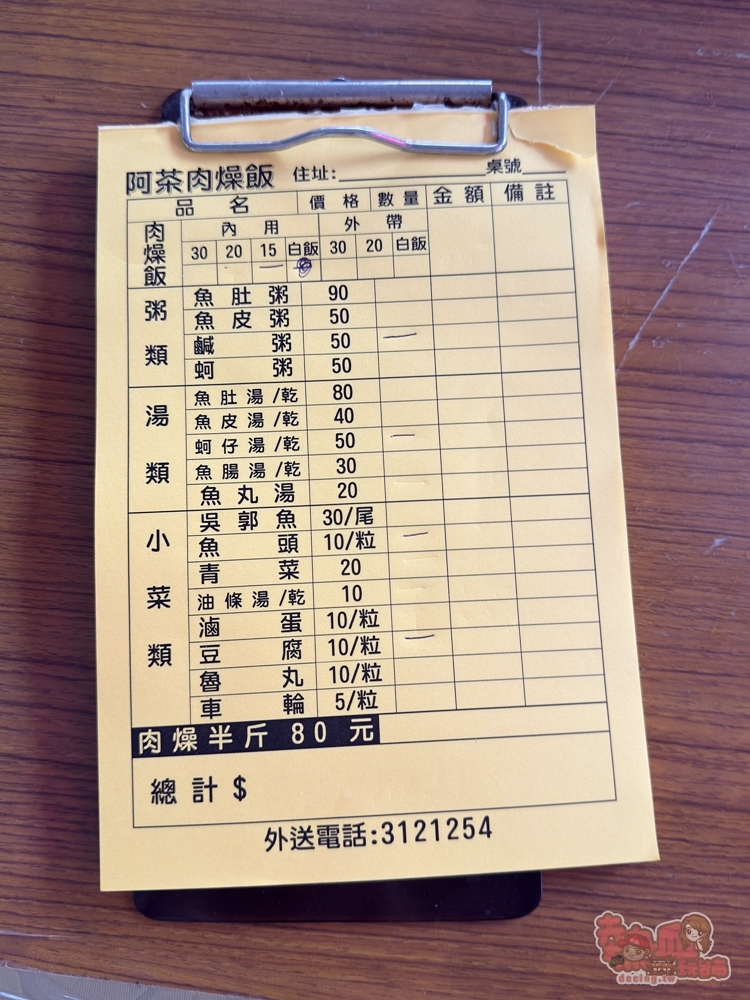 阿茶肉燥飯 住址: 桌號
品名 價格 數量 金額 備註
肉燥飯 內用 外帶
30 20 15 白飯 30 20 白飯
粥類
魚肚粥 90
魚皮粥 50
鹹粥 50
蚵粥 50
湯類
魚肚湯/乾 80
魚皮湯/乾 40
蚵仔湯/乾 50
魚腸湯/乾 30
魚丸湯 20
小菜類
吳郭魚 30/尾
魚頭 10/粒
青菜 20
油條湯/乾 10
滷蛋 10/粒
豆腐 10/粒
魯丸 10/粒
車輪 5/粒
肉燥半斤 80 元
總計 $
外送電話:3121254
decing.tw